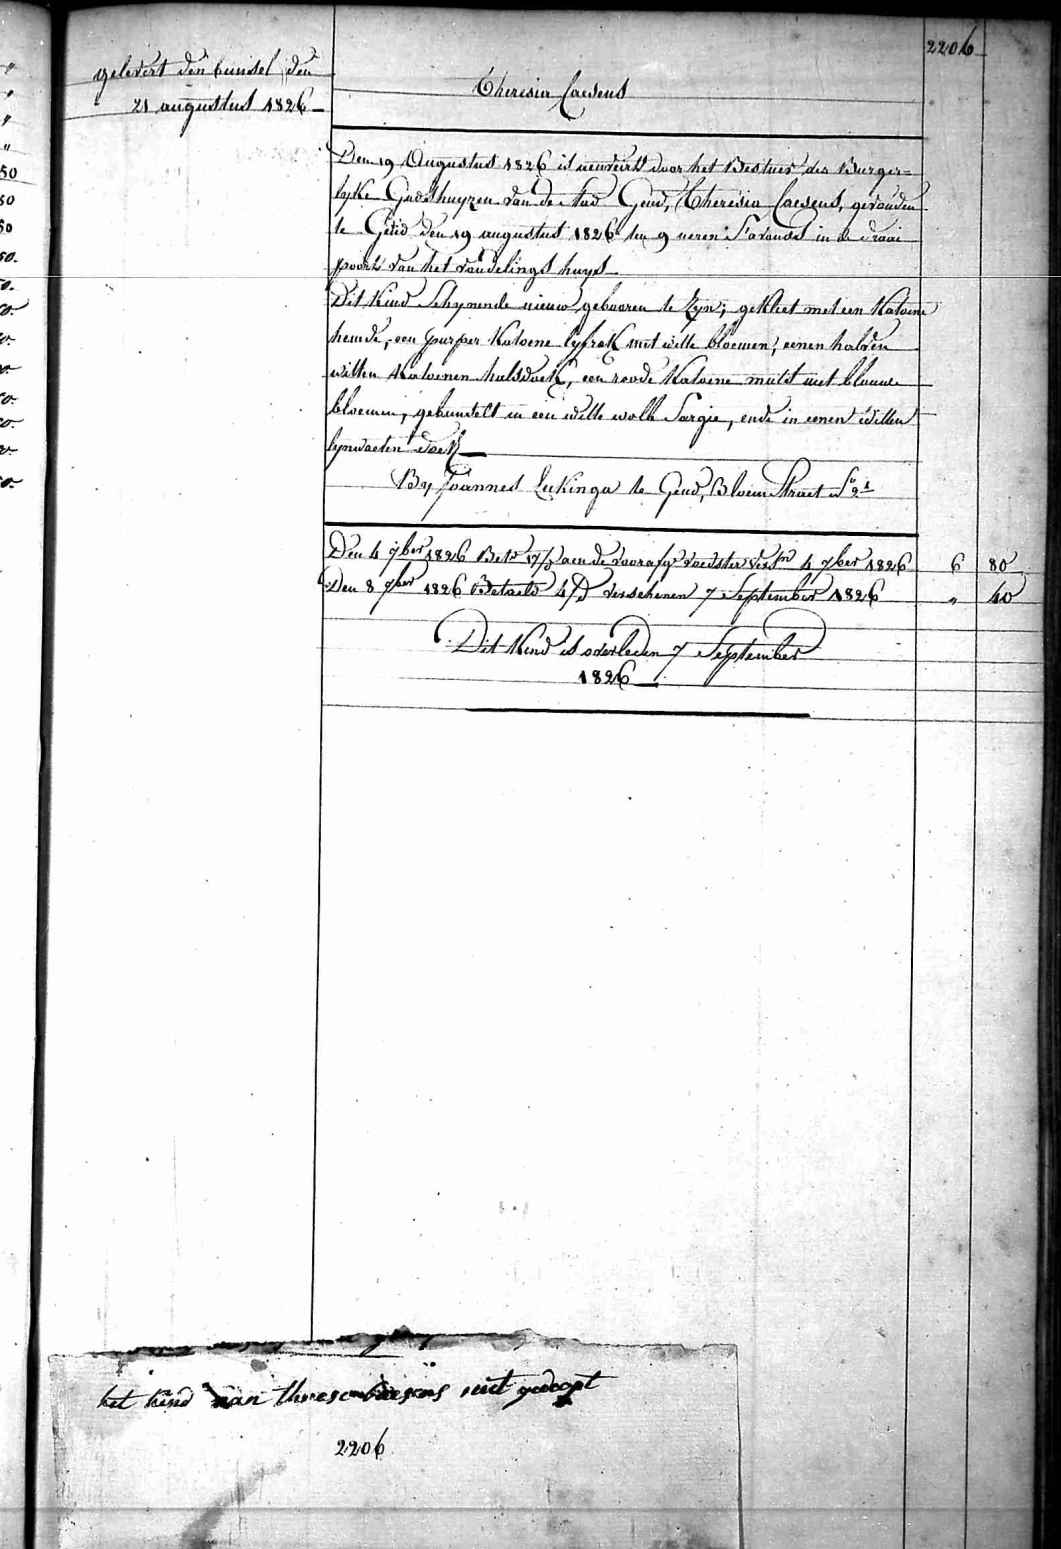 2206
gelevert den bunsel den
21 augustus 1826
Theresia Caesens
Den 19 Augustus 1826 is aenveirt door het Bestuer der Burger=
lyke Godshuyzen van de stad Gend, Theresia Caesens, gevonden
te Gend den 19 augustus 1826 ten 9 ueren s'avonds in de draai
poort van het vondelings huys
Dit kind schynende nieuw gebooren te zyn; gekleet met een katoene
hemde, een purper katoene lyfrok met witte bloemen, eenen halven
witten katoenen halsdoek, een roode katoene muts met blauwe
bloemen, gebunselt in een witte wolle sargie, ende in eenen witten
lynwaeten doek
By Joannes Lukinga te Gend, Bloem Straet
Den 4 7ber 1826 Bet. 17/D aen de voorafg. voedster vers. 4 7ber 1826 6 80
Den 8 7ber 1826 Betaeld 4/D verschenen 7 September 1826 " 40
Dit kind is overleden 7 September
1826
het kind van therese caesens niet gedoopt
2206
50
50
50
50.